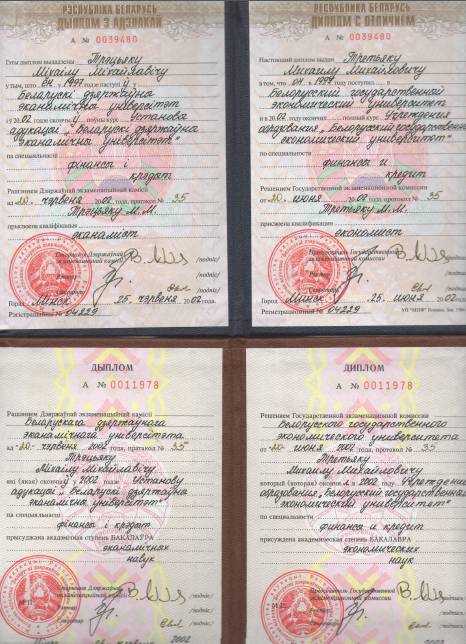 РЭСПУБЛІКА БЕЛАРУСЬ
ДЫПЛОМ З АДЗНАКАЙ
А № 0039480
Гэты дыплом выдадзены Трацьяку
Міхаілу Міхайлавічу
у тым, што ён у 1997 годзе паступіў у
Беларускі дзяржаўны
эканамічны універсітэт
і ў 2002 годзе скончыў поўны курс Установы
адукацыі „Беларускі дзяржаўны
эканамічны універсітэт“
па спецыяльнасці
фінансы і
крэдыт
Рашэннем Дзяржаўнай экзаменацыйнай камісіі
ад 20 чэрвеня 2002 года, пратакол № 35
Трацьяку М.М.
прысвоена кваліфікацыя
эканаміст
Старшыня Дзяржаўнай
экзаменацыйнай камісіі /подпіс/
Рэктар /подпіс/
Сакратар /подпіс/
Горад Мінск, 25 чэрвеня 2002 года.
Рэгістрацыйны № 04229
РЕСПУБЛИКА БЕЛАРУСЬ
ДИПЛОМ С ОТЛИЧИЕМ
А № 0039480
Настоящий диплом выдан Третьяку
Михаилу Михайловичу
в том, что он в 1997 году поступил в
Белорусский государственный
экономический университет
и в 2002 году окончил полный курс Учреждения
образования „Белорусский государственный
экономический университет“
по специальности
финансы и
кредит
Решением Государственной экзаменационной комиссии
от 20 июня 2002 года, протокол № 35
Третьяку М.М.
присвоена квалификация
экономист
Председатель Государственной
экзаменационной комиссии /подпись/
Ректор /подпись/
Секретарь /подпись/
Город Минск, 25 июня 2002 года.
Регистрационный № 04229
ДЫПЛОМ
А № 0011978
Рашэннем Дзяржаўнай экзаменацыйнай камісіі
Беларускага дзяржаўнага
эканамічнага універсітэта
ад 20 чэрвеня 2002 года, пратакол № 35
Трацьяку
Міхаілу Міхайлавічу
які (якая) скончыў у 2002 годзе Установу
адукацыі „Беларускі дзяржаўны
эканамічны універсітэт“
па спецыяльнасці
фінансы і крэдыт
прысуджана акадэмічная ступень БАКАЛАЎРА
эканамічных
навук
Старшыня Дзяржаўнай
экзаменацыйнай камісіі /подпіс/
М.П.
Рэктар /подпіс/
Сакратар /подпіс/
2002
ДИПЛОМ
А № 0011978
Решением Государственной экзаменационной комиссии
Белорусского государственного
экономического университета
от 20 июня 2002 года, протокол № 35
Третьяку
Михаилу Михайловичу
который (которая) окончил в 2002 году Учреждение
образования „Белорусский государственный
экономический университет“
по специальности
финансы и кредит
присуждена академическая степень БАКАЛАВРА
экономических
наук
Председатель Государственной
экзаменационной комиссии /подпись/
М.П.
Ректор /подпись/
Секретарь /подпись/
2002